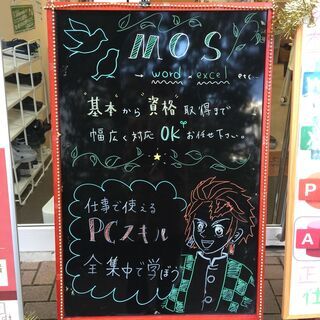 MOS
→ word excel etc...
"基本"から"資格"取得まで
幅広く対応OKお任せ下さい。
仕事で使える
PCスキル
全集中で学ぼう
P
A
正
仕